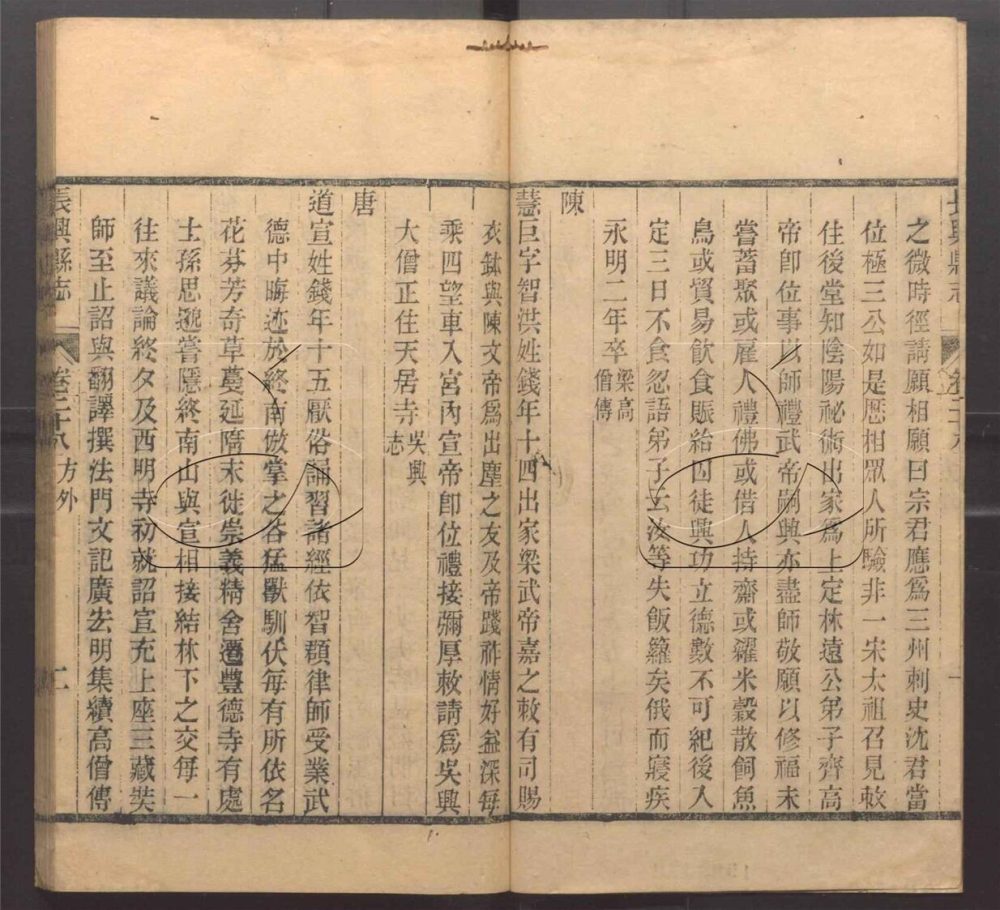 長興縣志
之微時徑請願相願曰宗君應爲三州刺史沈君當
位極三公如是厯相眾人所驗非一宋太祖召見敕
住後堂知陰陽祕術出家爲上定林遠公弟子齊高
帝卽位事以師禮武帝嗣興亦盡師敬願以修福未
嘗蓄聚或雇人禮佛或借人持齋或糴米穀散飼魚
鳥或貿易飲食賑給囚徒興功立德數不可紀後入
定三日不食忽語弟子云汝等失飯籮矣俄而寢疾
永明二年卒梁高僧傳
陳
慧巨字智洪姓錢年十四出家梁武帝嘉之敕有司賜
衣鉢與陳文帝爲出塵之友及帝踐祚情好益深每
乘四望車入宮內宣帝卽位禮接彌厚敕請爲吳興
大僧正住天居寺吳興志
唐
道宣姓錢年十五厭俗誦習諸經依智頵律師受業武
德中晦迹於終南倣掌之谷猛獸馴伏每有所依名
花芬芳奇草蔓延隋末徙崇義精舍遷豐德寺有處
士孫思邈嘗隱終南山與宣相接結林下之交每一
往來議論終夕及西明寺初就詔宣充上座三藏奘
師至止詔與翻譯撰法門文記廣宏明集續高僧傳
長興縣志
卷二十八 方外
二